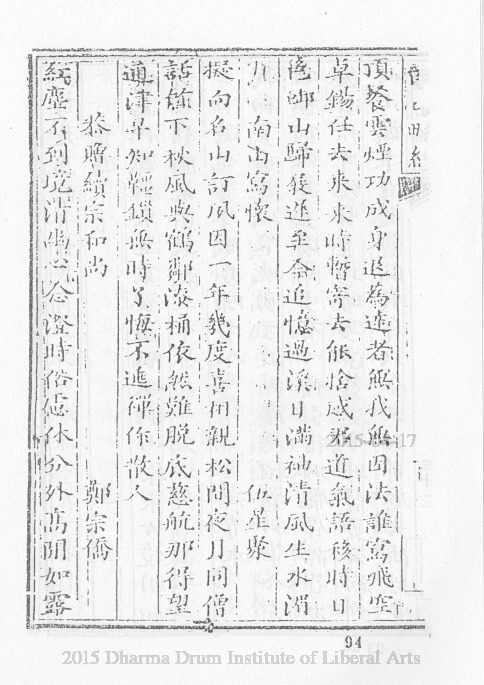 頂餐雲煙功成身退為達者無我無因法誰寫飛空
卓錫任去來來時暫寄去能捨感 道氣語移時日
 山歸 遲至今追憶過溪日滿袖清風生水湄
九 南山寫懷 伍星聚
擬向名山訂夙因一年幾度喜相親松間夜月同僧
話 下秋風與鶴鄰漆桶依然難脫底慈航那得望
通津早知韁鎖無時了悔不逃禪作散人
恭贈續宗和尚 鄭宗僑
紅塵不到境清幽 念澄時俗慮休分外高閒如露
94
2015-04-17
2015 Dharma Drum Institute of Liberal Arts